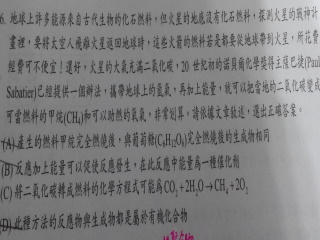 6. 地球上許多能源來自古代生物的化石燃料，但火星的地底沒有化石燃料，探測火星的精神計
畫裡，要將太空人飛離火星返回地球時，這些火箭的燃料若是都要從地球帶到火星，所花費
經費可不便宜！還好，火星的大氣充滿二氧化碳，20 世紀初的諾貝爾化學獎得主薩巴捷(Paul
Sabatier)已經提供一個辦法，攜帶地球上的氫氣，再加上能量，就可以把當地的二氧化碳變成
可當燃料的甲烷(CH₄)和可以助燃的氧氣，非常划算。請依據文章敘述，選出正確答案。
(A) 產生的燃料甲烷完全燃燒後，與葡萄糖(C₆H₁₂O₆)完全燃燒後的生成物相同
(B) 反應加上能量可以促使反應發生，在此反應中能量為一種催化劑
(C) 將二氧化碳轉成燃料的化學方程式可能為CO₂+2H₂O→CH₄+2O₂
(D) 此種方法的反應物與生成物都是屬於有機化合物